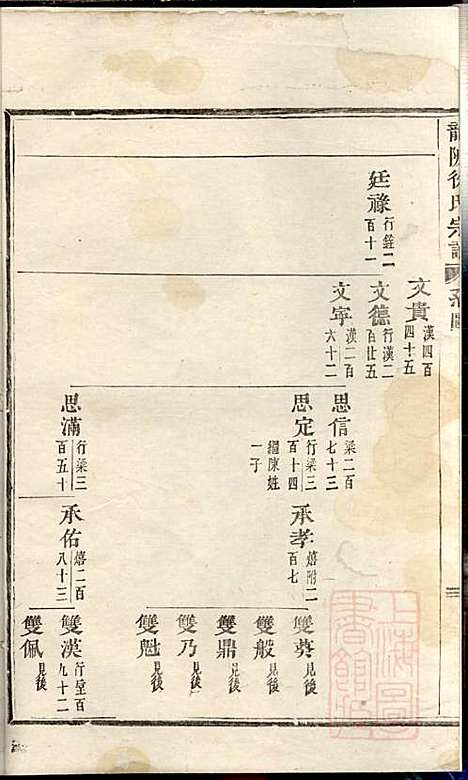 徐氏宗譜
廷祿 行銓二百十一
文貴 漢四百四十五
文德 行漢二百廿五
文宇 漢二百六十二
思信 梁二百七十三
思定 行梁三百十四 繼陳姓一子
思滿 行梁三百五十
承孝 嬉附二百七
承佑 嬉二百八十三
雙葵 見後
雙般 見後
雙鼎 見後
雙乃 見後
雙魁 見後
雙漢 行奎百九十二
雙佩 見後
上海圖書館藏